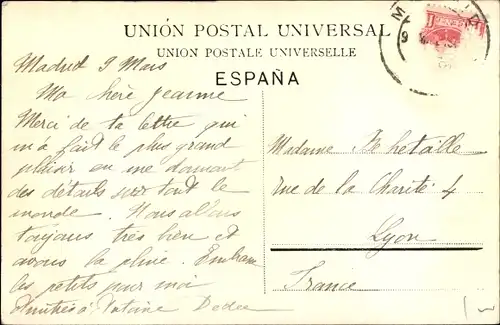 UNIÓN POSTAL UNIVERSAL
UNION POSTALE UNIVERSELLE
ESPAÑA
Madrid 9 Mars
Ma chère Jeanne
Merci de ta lettre qui
m'a fait le plus grand
plaisir en me donnant
des détails sur tout le
monde. Nous allons
toujours très bien et
avons la pluie. Embrasse
les petits pour moi
Amitiés à
Madame
rue de la Charité 4
Lyon
France